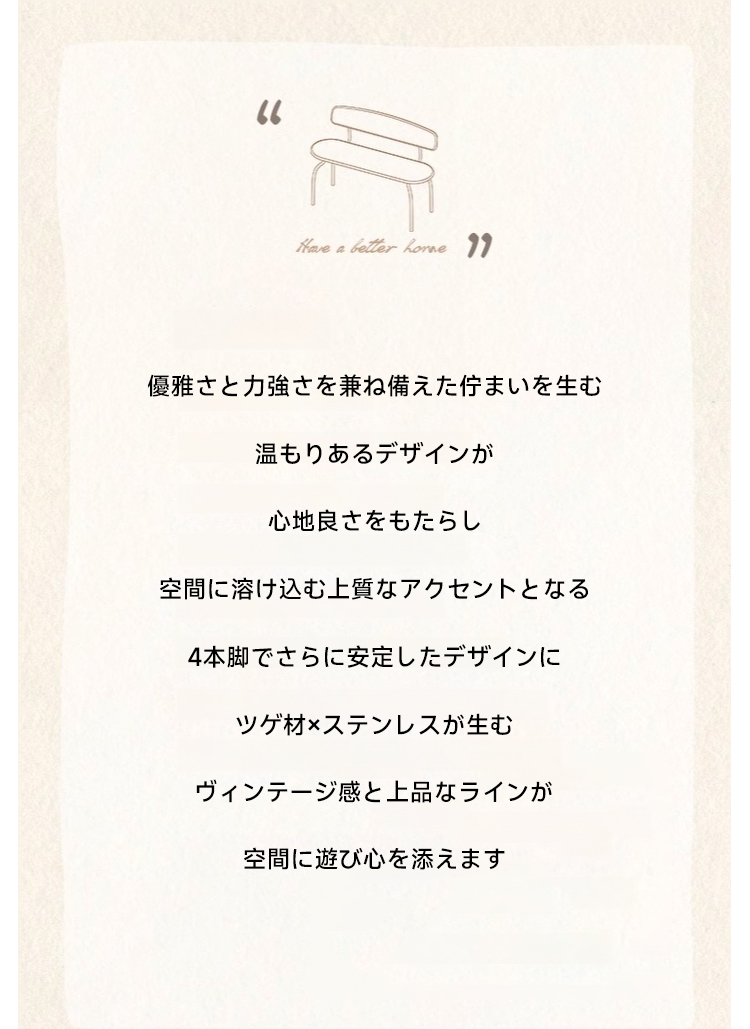 “
Have a better home ”
優雅さと力強さを兼ね備えた佇まいを生む
温もりあるデザインが
心地良さをもたらし
空間に溶け込む上質なアクセントとなる
4本脚でさらに安定したデザインに
ツゲ材×ステンレスが生む
ヴィンテージ感と上品なラインが
空間に遊び心を添えます